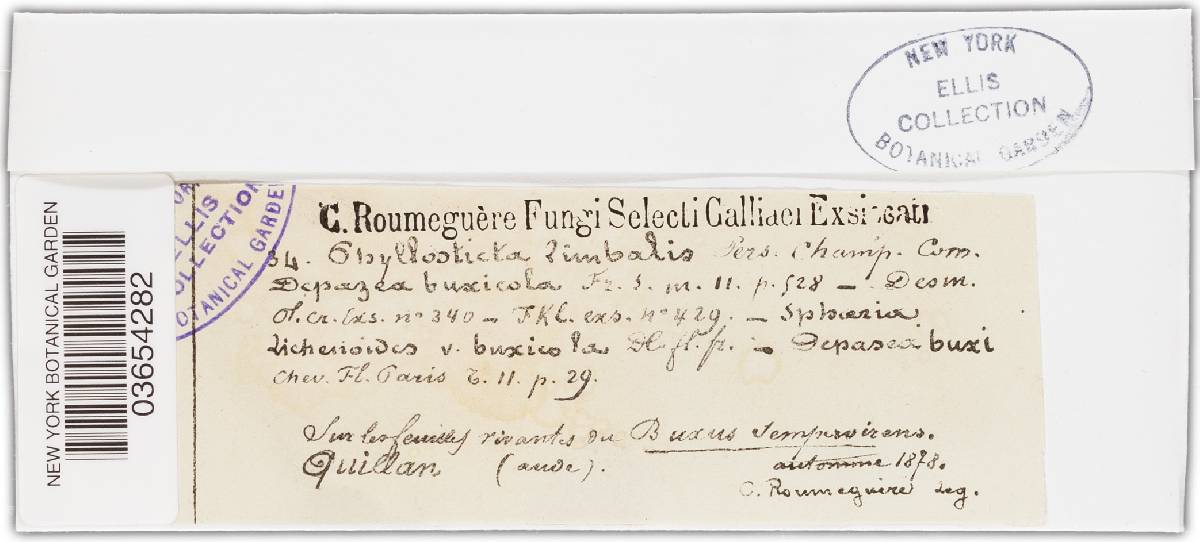 NEW YORK
ELLIS
COLLECTION
BOTANICAL GARDEN
ELLIS
COLLECTION
BOTANICAL GARDEN
NEW YORK BOTANICAL GARDEN
03654282
C. Roumeguère Fungi Selecti Galliaei Exsiccati
34. Phyllosticta limbalis Pers. Champ. Com.
Depazea buxicola Fr. S. m. 11. p. 528 – Desm.
Pl. cr. Exs. n° 340 – FKl. exs. n° 429. – Sphæria
lichenoides v. buxicola DC. fl. fr. – Depazea buxi
Chev. Fl. Paris t. 11. p. 29.
Sur les feuilles vivantes du Buxus Sempervirens.
Quillan (aude). automne 1878.
C. Roumeguère leg.